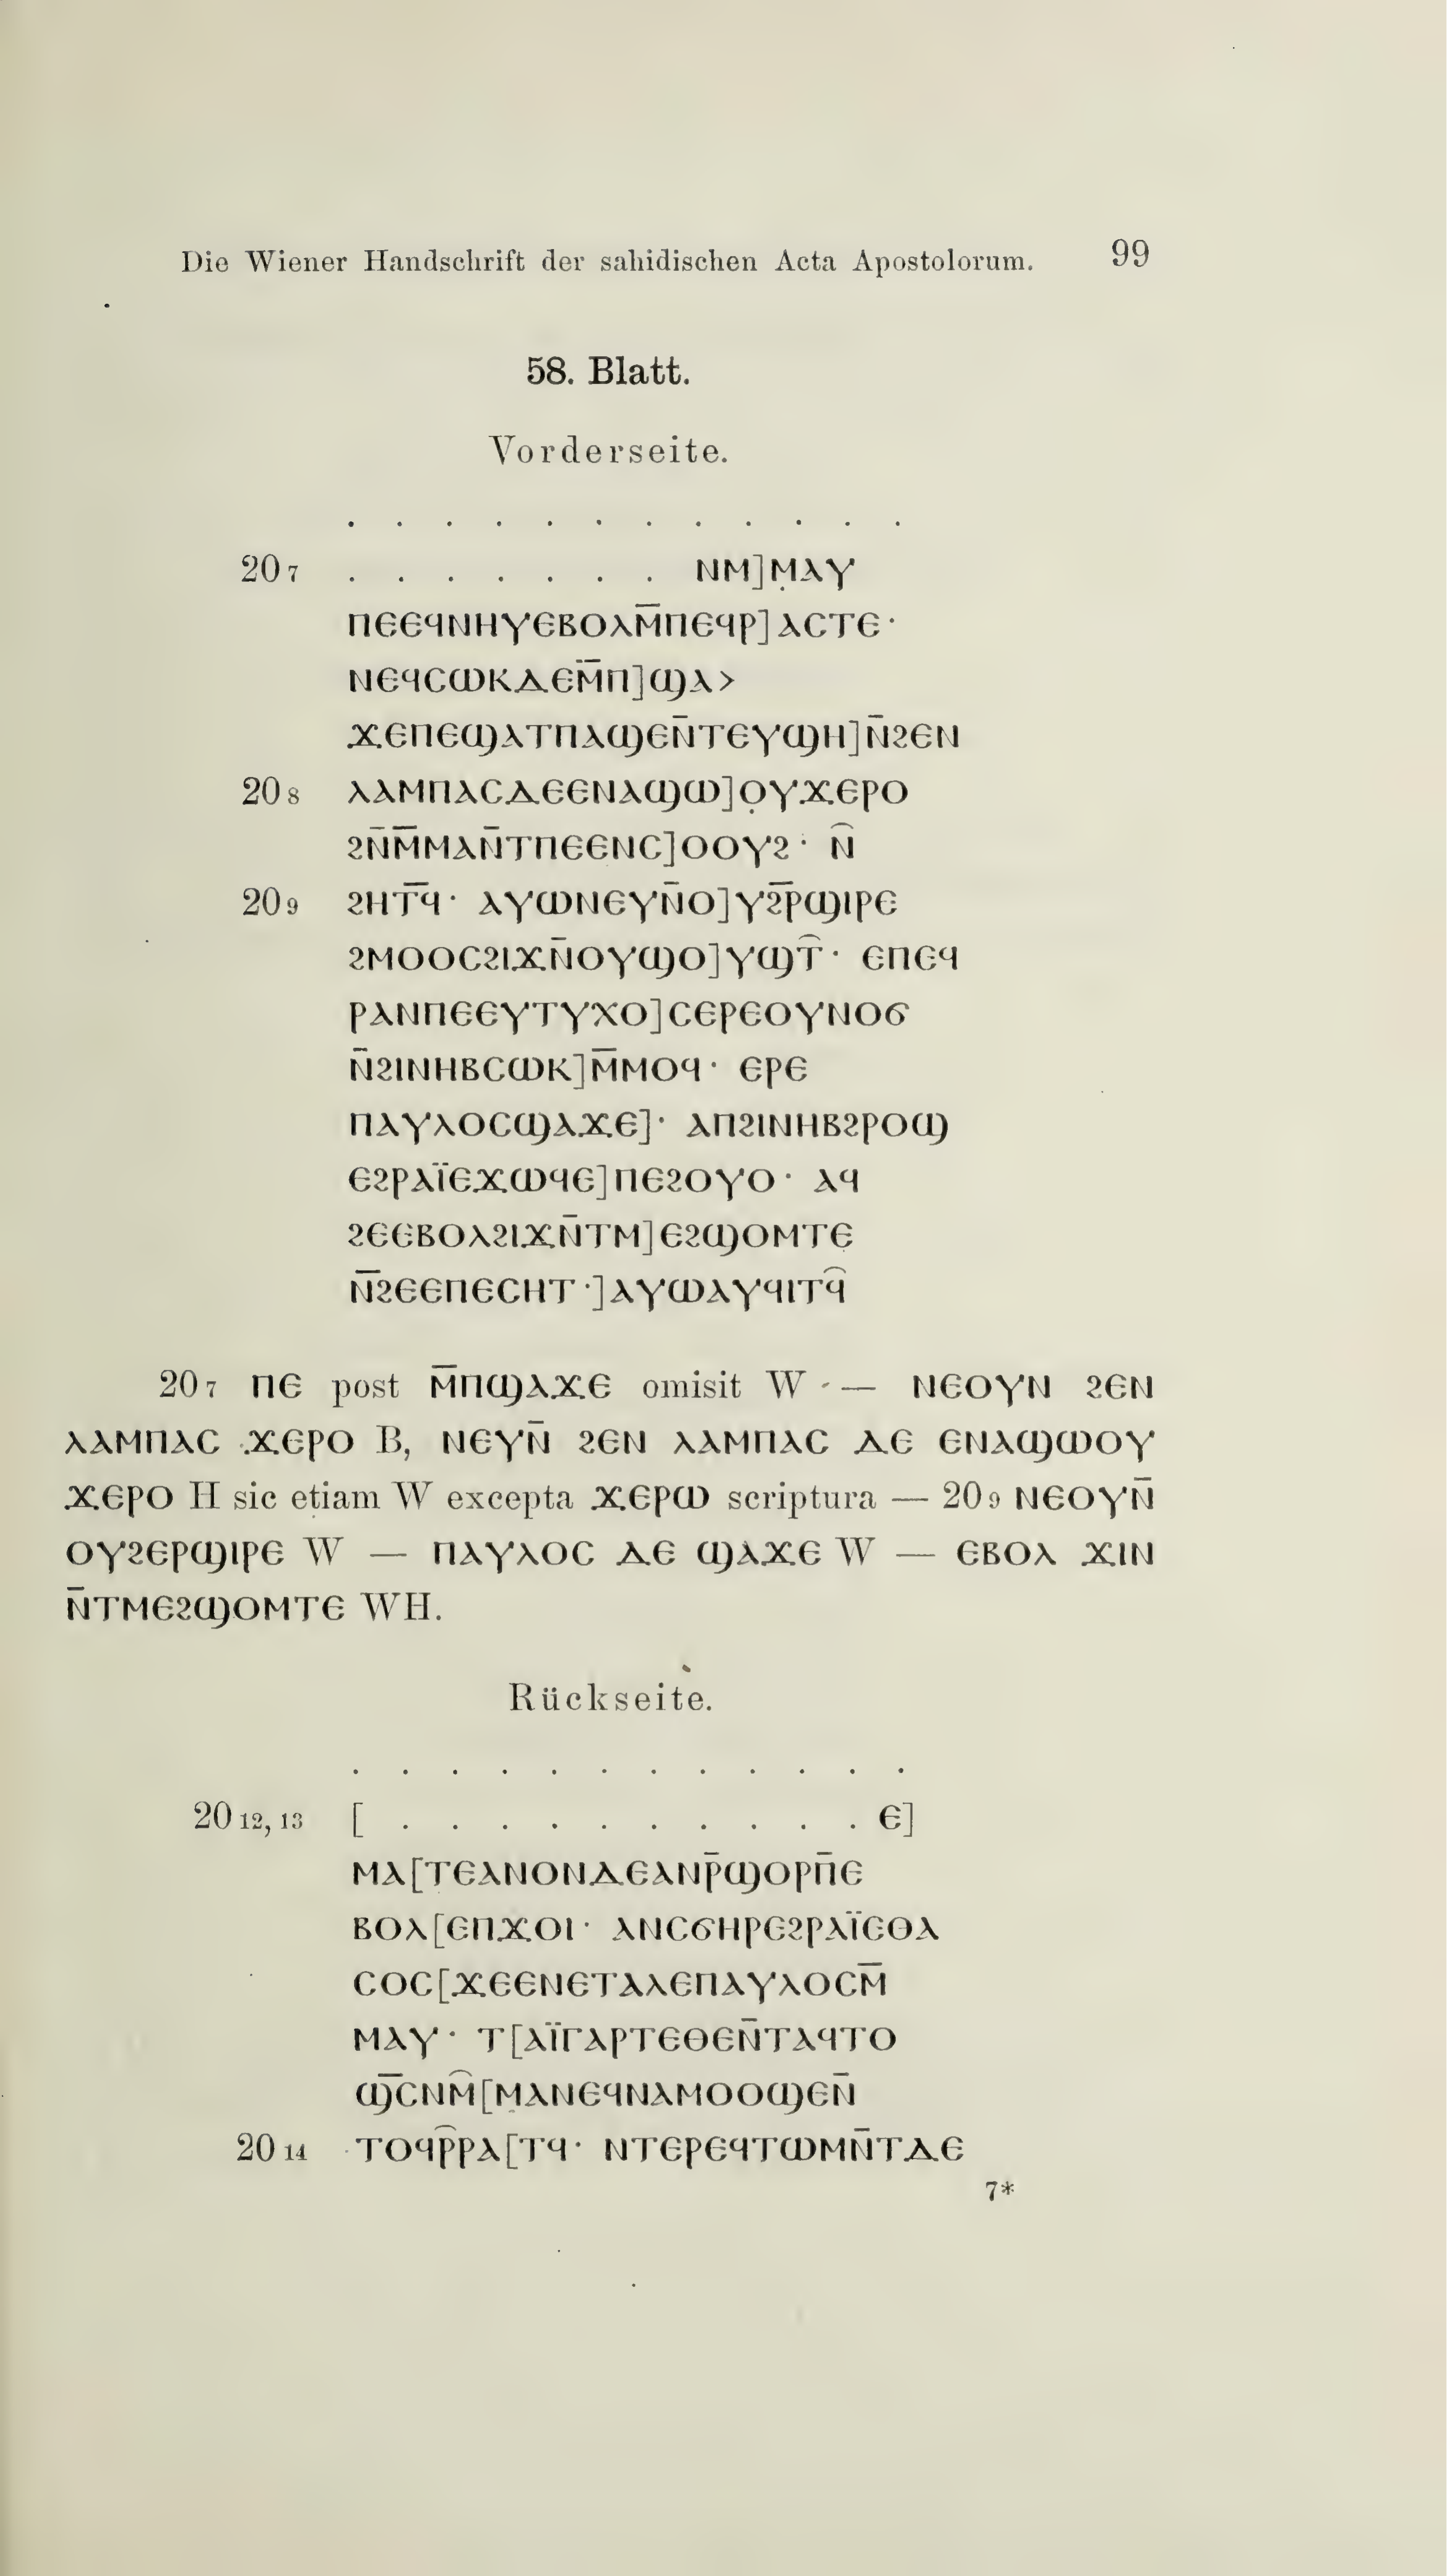 Die Wiener Handschrift der sahidischen Acta Apostolorum. 99
58. Blatt.
Vorderseite.
. . . . . . . . . . . .
20 7 . . . . . . . ⲛⲙ]ⲙ̣ⲁⲩ
ⲡⲉⲉϥⲛⲏⲩⲉⲃⲟⲗⲙ̅ⲡⲉϥⲣ]ⲁⲥⲧⲉ·
ⲛⲉϥⲥⲱⲕⲇⲉⲙ̅ⲡ]ϣⲁ>
ϫⲉⲡⲉϣⲁⲧⲡⲁϣⲉⲛ̅ⲧⲉⲩϣⲏ]ⲛ̅ϩⲉⲛ
20 8 ⲗⲁⲙⲡⲁⲥⲇⲉⲉⲛⲁϣⲱ]ⲟ̣ⲩϫⲉⲣⲟ
ϩⲛ̅ⲙ̅ⲙⲁⲛ̅ⲧⲡⲉⲉⲛⲥ]ⲟⲟⲩϩ· ⲛ̑
20 9 ϩⲏⲧϥ̅· ⲁⲩⲱⲛⲉⲩⲛ̅ⲟ]ⲩϩⲣ̅ϣⲓⲣⲉ
ϩⲙⲟⲟⲥϩⲓϫⲛ̅ⲟⲩϣⲟ]ⲩϣⲧ̑· ⲉⲡⲉϥ
ⲣⲁⲛⲡⲉⲉⲩⲧⲩⲭⲟ]ⲥⲉⲣⲉⲟⲩⲛⲟϭ
ⲛ̅ϩⲓⲛⲏⲃⲥⲱⲕ]ⲙ̅ⲙⲟϥ· ⲉⲣⲉ
ⲡⲁⲩⲗⲟⲥϣⲁϫⲉ]· ⲁⲡϩⲓⲛⲏⲃϩⲣⲟϣ
ⲉϩⲣⲁⲓ̈ⲉϫⲱϥⲉ]ⲡⲉϩⲟⲩⲟ· ⲁϥ
ϩⲉⲉⲃⲟⲗϩⲓϫⲛ̅ⲧⲙ]ⲉϩϣⲟⲙⲧⲉ
ⲛ̅ϩⲉⲉⲡⲉⲥⲏⲧ·]ⲁⲩⲱⲁⲩϥⲓⲧϥ̑
20 7 ⲡⲉ post ⲙ̅ⲡϣⲁϫⲉ omisit W — ⲛⲉⲟⲩⲛ ϩⲉⲛ
ⲗⲁⲙⲡⲁⲥ ϫⲉⲣⲟ B, ⲛⲉⲩⲛ̅ ϩⲉⲛ ⲗⲁⲙⲡⲁⲥ ⲇⲉ ⲉⲛⲁϣⲱⲟⲩ
ϫⲉⲣⲟ H sic etiam W excepta ϫⲉⲣⲱ scriptura — 20 9 ⲛⲉⲟⲩⲛ̅
ⲟⲩϩⲉⲣϣⲓⲣⲉ W — ⲡⲁⲩⲗⲟⲥ ⲇⲉ ϣⲁϫⲉ W — ⲉⲃⲟⲗ ϫⲓⲛ
ⲛ̅ⲧⲙⲉϩϣⲟⲙⲧⲉ WH.
Rückseite.
. . . . . . . . . . . .
20 12, 13 [ . . . . . . . . . . ⲉ]
ⲙⲁ[ⲧⲉⲁⲛⲟⲛⲇⲉⲁⲛⲣ̅ϣⲟⲣⲡ̅ⲉ
ⲃⲟⲗ[ⲉⲡϫⲟⲓ· ⲁⲛⲥϭⲏⲣⲉϩⲣⲁⲓ̈ⲉⲑⲁ
ⲥⲟⲥ[ϫⲉⲉⲛⲉⲧⲁⲗⲉⲡⲁⲩⲗⲟⲥⲙ̅
ⲙⲁⲩ· ⲧ[ⲁⲓ̈ⲅⲁⲣⲧⲉⲑⲉⲛ̅ⲧⲁϥⲧⲟ
ϣ̅ⲥⲛⲙ̑[ⲙⲁⲛⲉϥⲛⲁⲙⲟⲟϣⲉⲛ̅
20 14 ⲧⲟϥⲣ̑ⲣⲁ[ⲧϥ· ⲛⲧⲉⲣⲉϥⲧⲱⲙⲛ̅ⲧⲇⲉ
7*